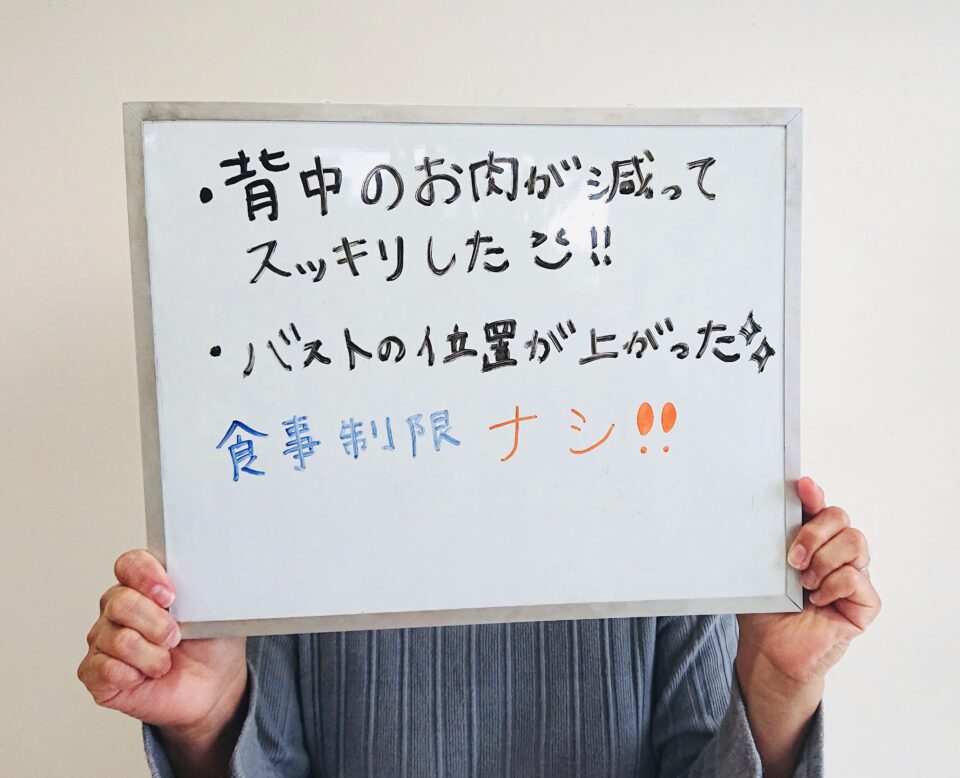 ・背中のお肉が減って
スッキリした!!
・バストの位置が上がった
食事制限ナシ!!